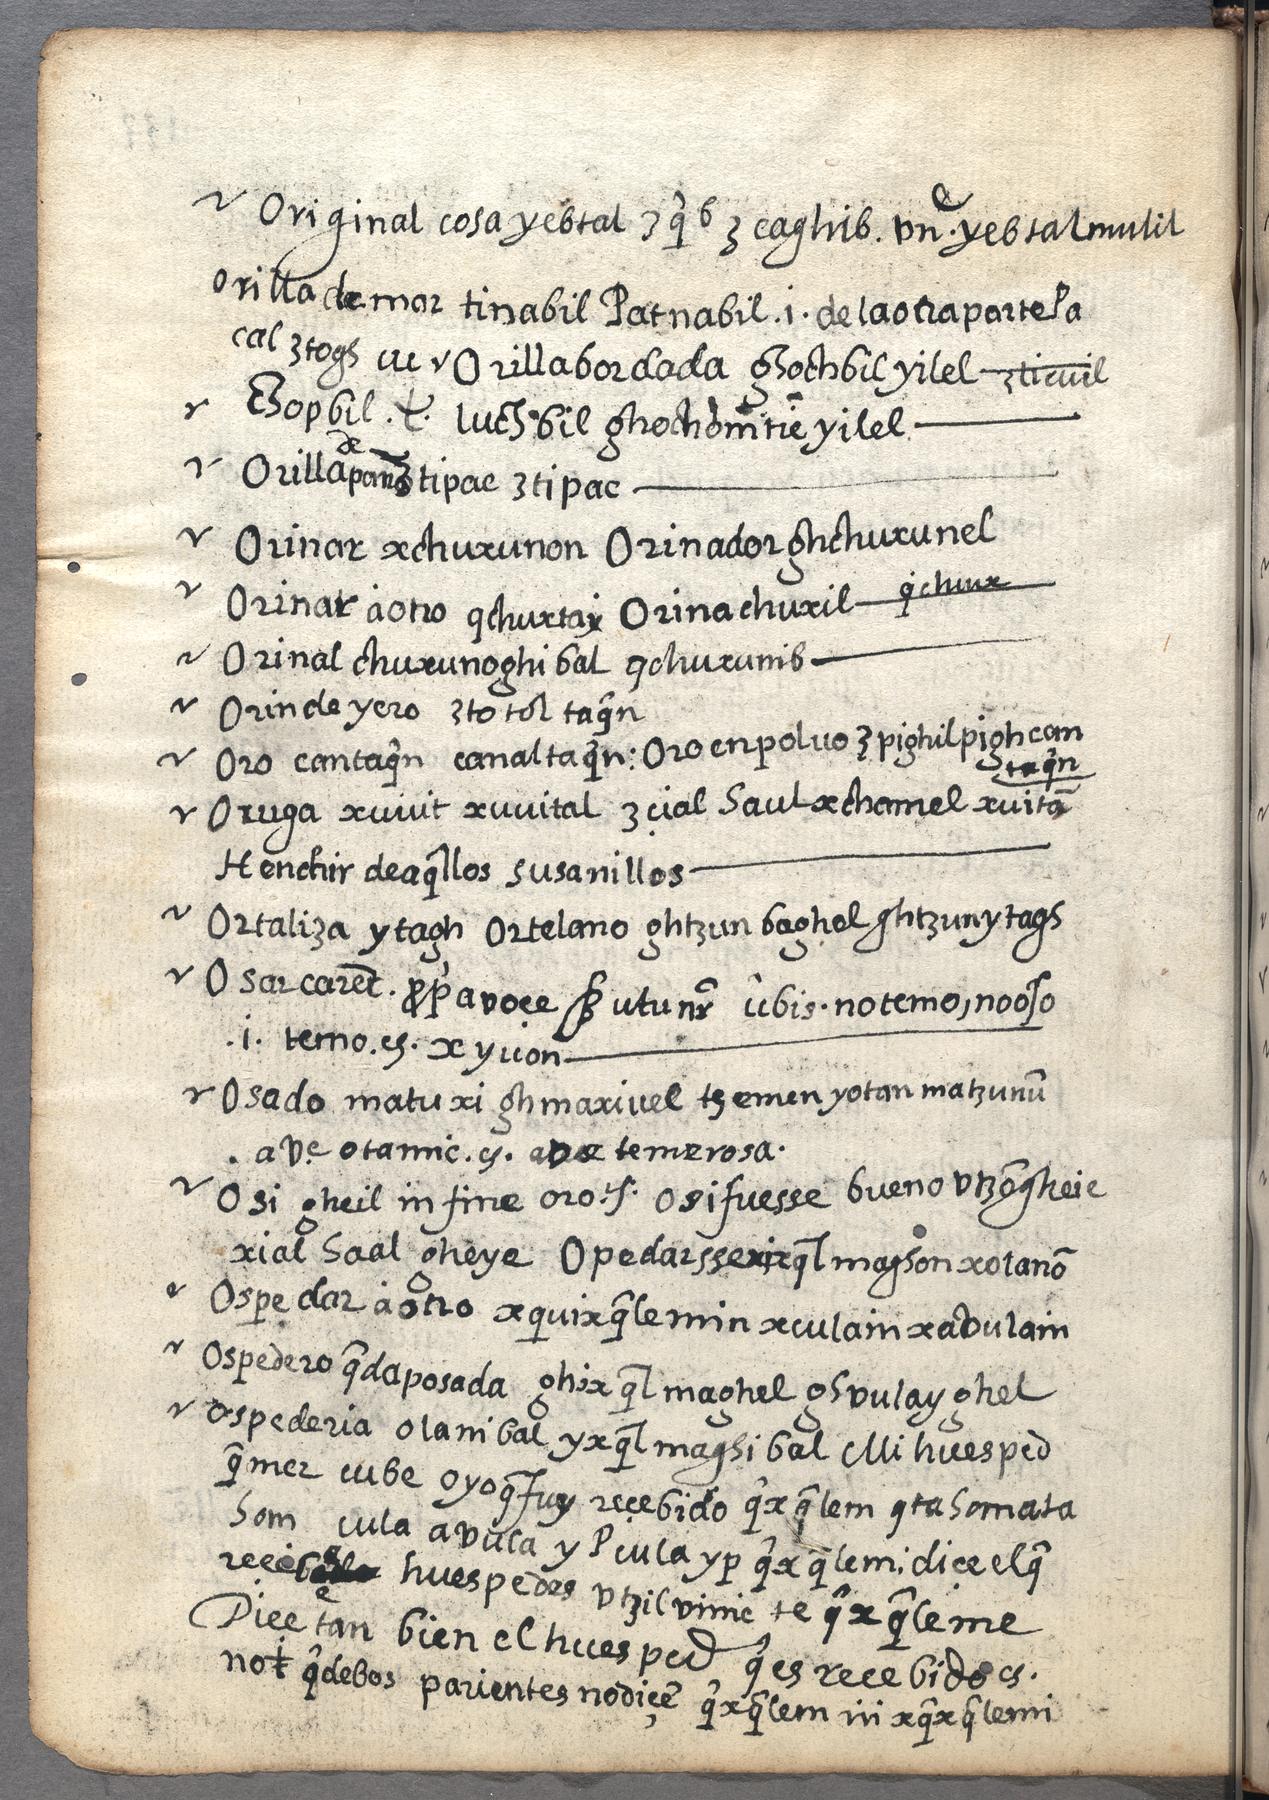 Original cosa yebtal ʒ q̃b ʒ caghib. vn̄. yebtal mulil
Orilla de mar tinabil Patnabil .i. de la otra parte Pa
cal ʒtogh uc v Orilla bordada ghochbil yilel ʒticuil
Ghopbil .t. luchbil ghochom̄tiē yilel
Orilla de paño ʒtipac ʒtipac
Orinar xchuxunon Orinador ghchuxunel
Orinar à otro qchuxtay Orina chuxil qchuux
Orinal chuxunoghibal qchuxunib
Orin de yero ʒto tol taq̃n
Oro cantaq̃n canaltaq̃n: Oro en poluo ʒ pighil pigh can
taq̃n
Oruga xuvit xuvital ʒ çial haul xchamel xuitā
Henchir de aq̃llos gusanillos
Ortaliza ytagh Ortelano ghtzun baghel ghtzun ytagh
Osar caret. ꝓp̃a voce utunr̄ ûbis. no temo, no oso
.i. temo. cs. x yuon
Osado matuxi ghmaxiuel tzemen yotan matzunū
. ave otamic. cs. temerosa.
O si gheil in fine oro.s. O si fuesse bueno vtzō gheie
xial haal gheye Opedarsse xixq̃l maghon xolanō
Ospedar à otro xquixq̃lemin xculain xavulain
Ospedero q̃ da posada ghixq̃l maghel gh vulayghel
Ospederia olanibal yxq̃l maghibal Mi huesped
q̃ mer cube o yo q̃ fuy recebido q̃xq̃lem qta homata
hom cula avula y P cula yp q̃xq̃lemi diçe el q̃
recibe huespedes vtzil vinic te q̃xq̃leme
Diçe tan bien el huesped q̃ es recebido cs.
not q̃ debos parientes no diçē q̃xq̃lem iii xq̃xq̃lemi